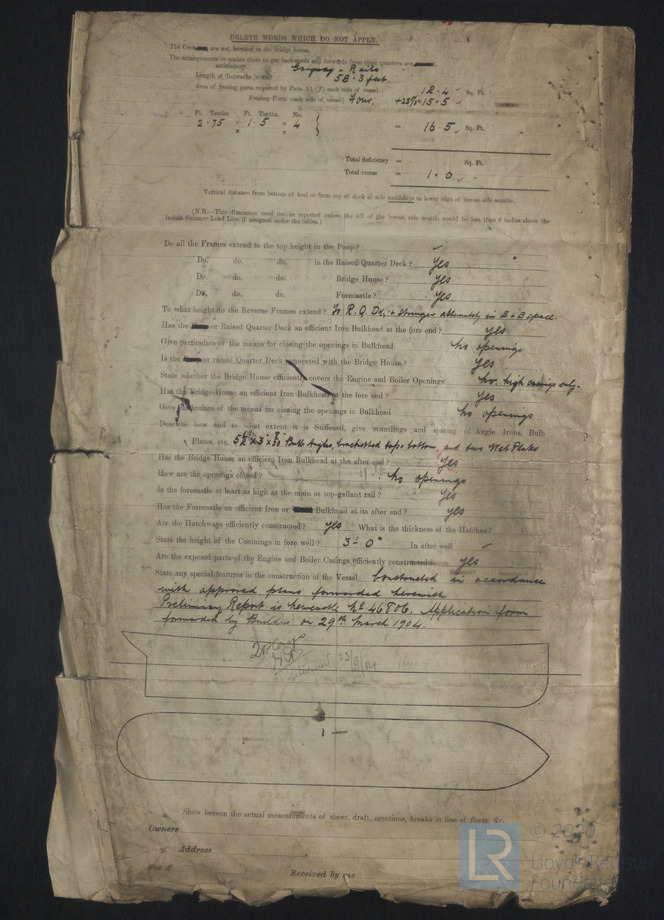 DELETE WORDS WHICH DO NOT APPLY.
The Crew are not, berthed in the bridge house.
The arrangements to enable them to get backwards and forwards from their quarters are
satisfactory. Gangway & Rails
Length of Bulwarks in well 58.3 feet.
Area of freeing ports required by Para. 11 (E) each side of vessel 12.4 Sq. Ft.
Freeing Ports (each side of vessel) Four. +25% 15.5
Ft. Tenths. Ft. Tenths. No.
2.75 × 1.5 × 4 } = 16.5 Sq. Ft.
× ×
Total deficiency = Sq. Ft.
Total excess = 1.0
Vertical distance from bottom of keel or from top of deck at side amidships to lower edge of lowest side scuttle.
(N.B.—This dimension need not be reported unless the sill of the lowest side scuttle would be less than 6 inches above the
Indian Summer Load Line if assigned under the tables.)
Do all the Frames extend to the top height in the Poop?
Do. do. do. in the Raised Quarter Deck? Yes
Do. do. do. Bridge House? Yes
Do. do. do. Forecastle? Yes
To what height do the Reverse Frames extend? To R.Q.Dk. & Stringer alternately in E & B space.
Has the or Raised Quarter Deck an efficient Iron Bulkhead at the fore end? Yes
Give particulars of the means for closing the openings in Bulkhead No openings
Is the or raised Quarter Deck connected with the Bridge House? Yes
State whether the Bridge House efficiently covers the Engine and Boiler Openings No. high casings only.
Has the Bridge House an efficient Iron Bulkhead at the fore end? Yes
Give particulars of the means for closing the openings in Bulkhead No openings
Describe how and to what extent it is Stiffened, give scantlings and spacing of Angle Irons, Bulb
Plates, etc. Bulb Angles, bracketted top & bottom, and two Web Plates
Has the Bridge House an efficient Iron Bulkhead at the after end? Yes
How are the openings closed? No openings
Is the forecastle at least as high as the main or top-gallant rail? Yes
Has the Forecastle an efficient Iron or Bulkhead at its after end? Yes
Are the Hatchways efficiently constructed? Yes What is the thickness of the Hatches?
State the height of the Coamings in fore well? 3'- 0" In after well
Are the exposed parts of the Engine and Boiler Casings efficiently constructed? Yes
State any special features in the construction of the Vessel. Constructed in accordance
with approved plans forwarded herewith
Preliminary Report is Newcastle No 46806. Application form
forwarded by Builders on 29th March 1904.
Show hereon the actual measurements of sheer, draft, erections, breaks in line of floors, &c.
Owners
Address
Fee £
Received by me
LR
© 2020
Lloyd's Register
Foundation